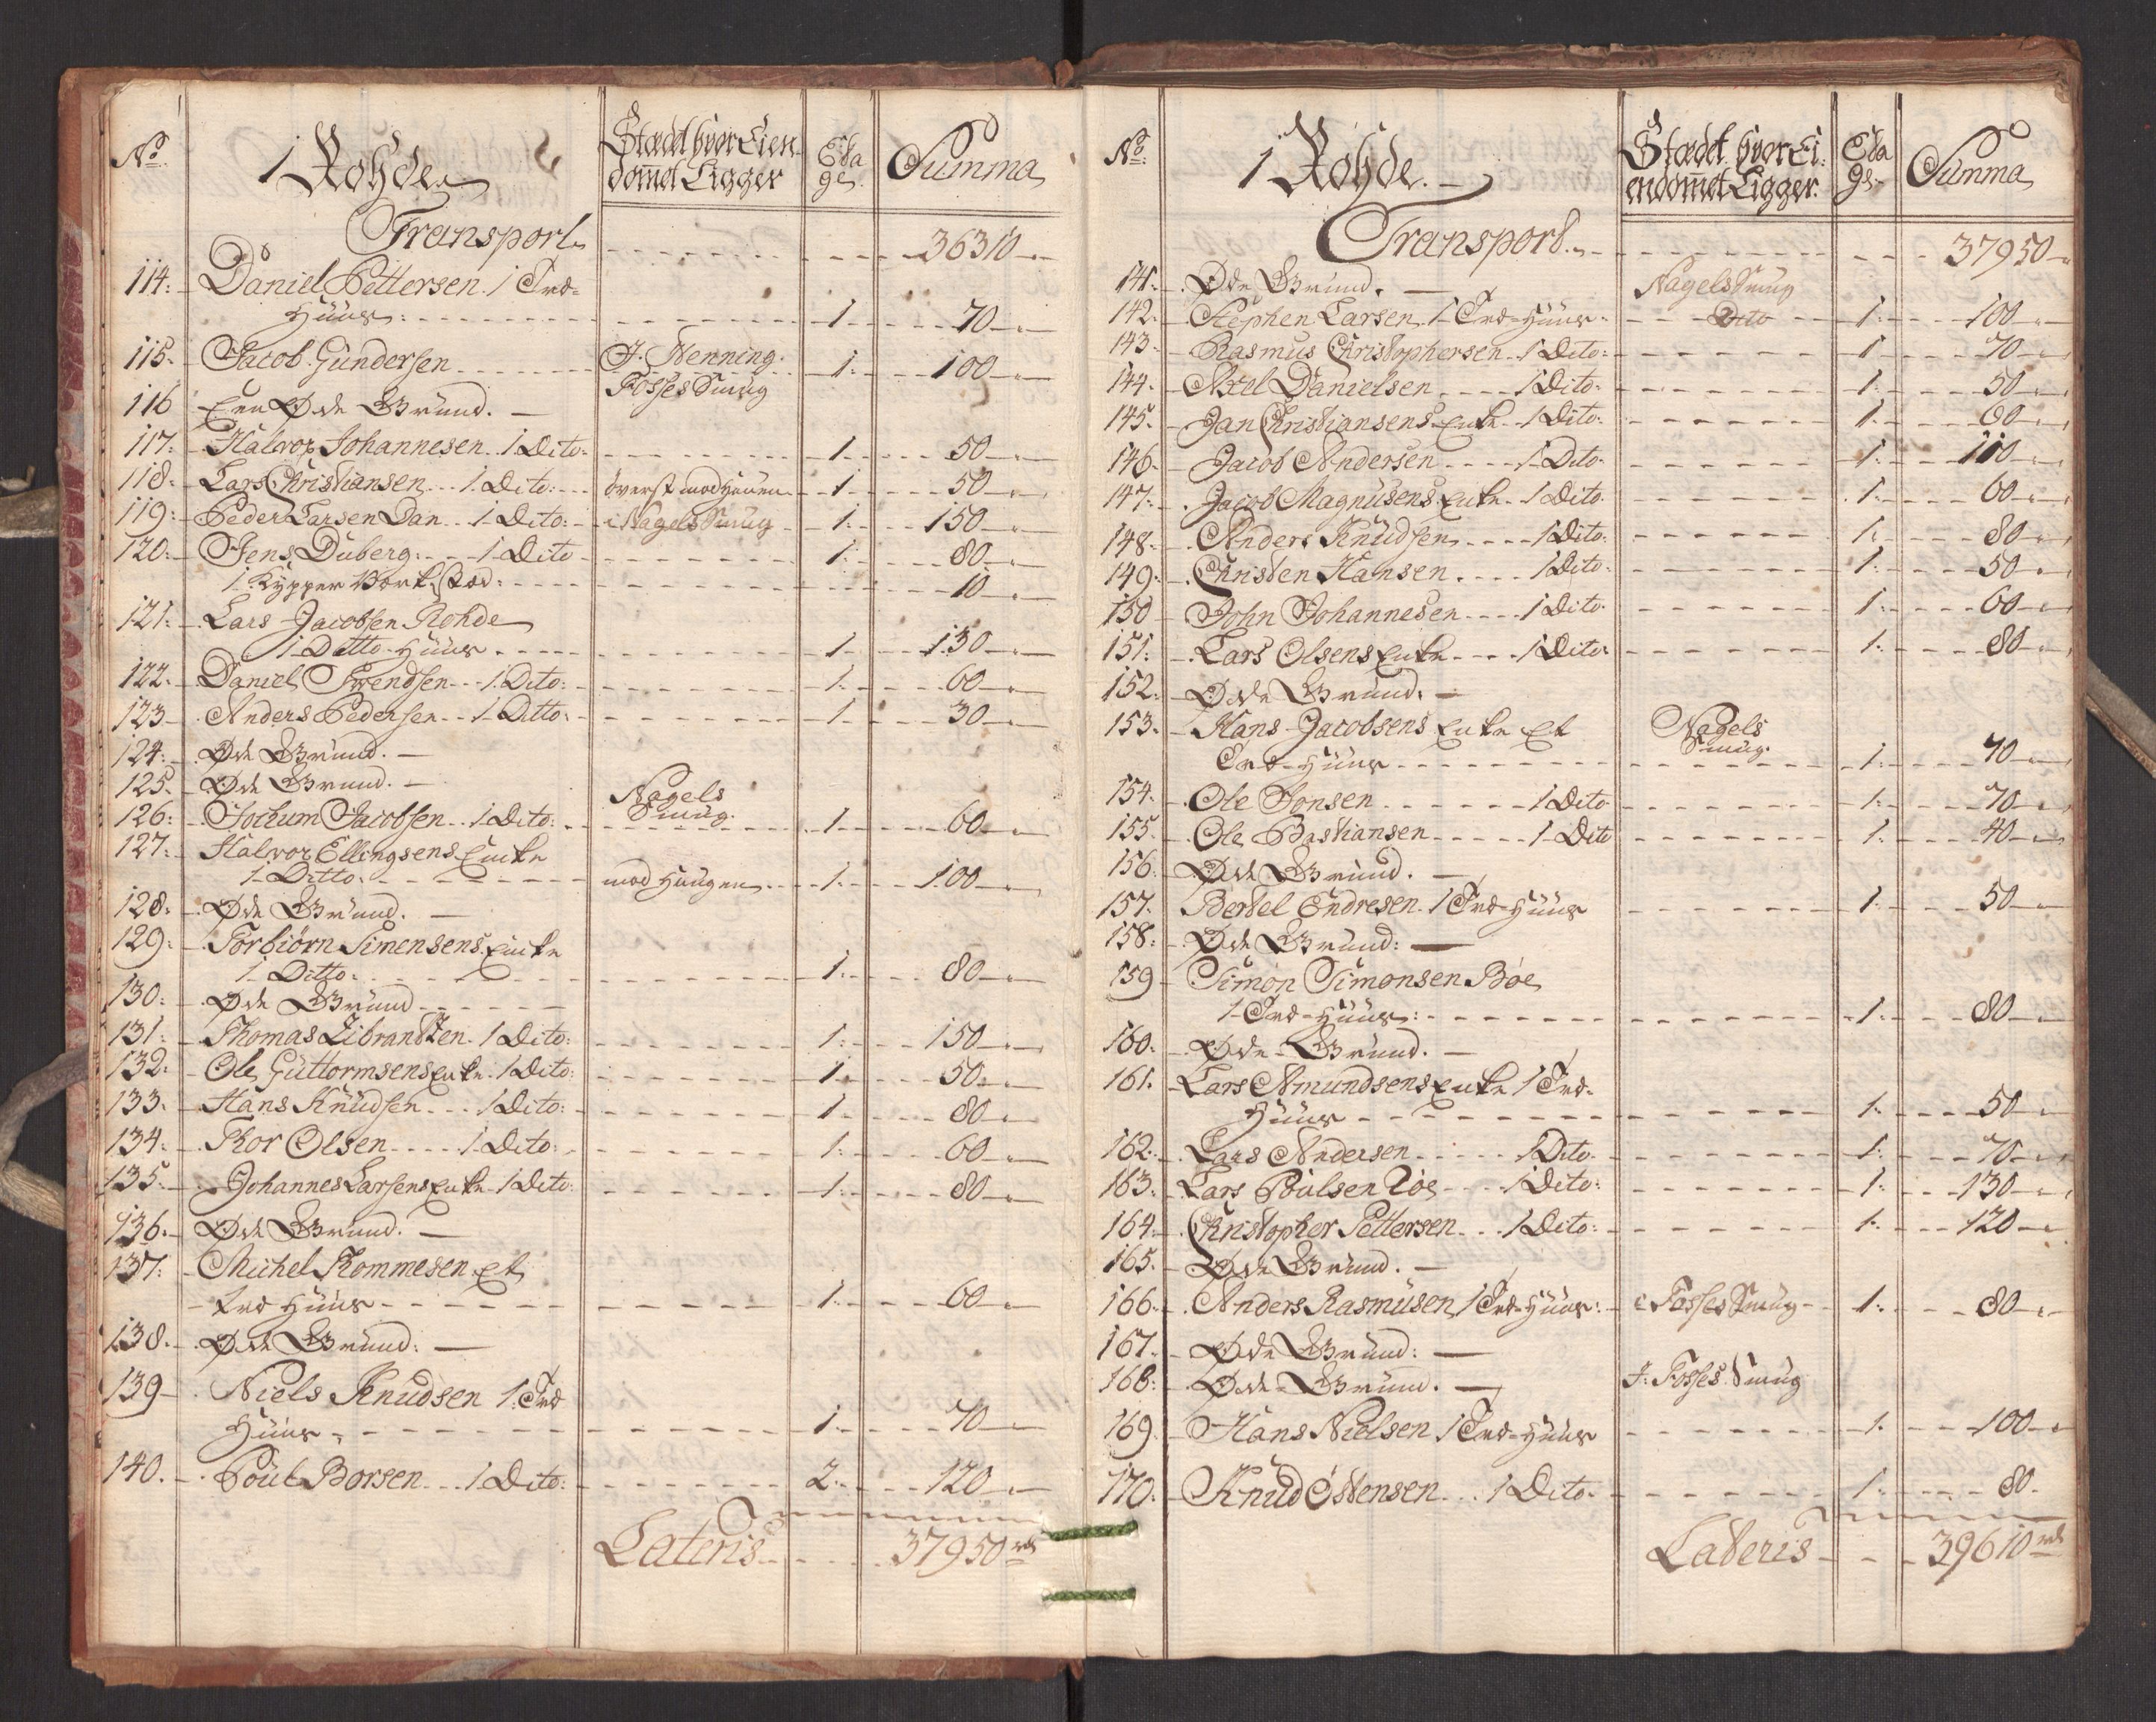 No 1 Rohde Stædet hvor Eien- Eta Summa
domet Ligger ge.
Transport 36310
114: Daniel Pettersen 1 Træ-
Huus: 1 70
115: Jacob Gundersen J. Henning 1 100
116 Een Øde Grund. Fosses Smug
117: Halvor Johannesen 1 Dito: 1 50
118: Lars Christiansen 1 Dito: överst mod Hauen 1 50
119: Peder Larsen Dan 1 Dito: i Nagels Smug 1: 150
120: Jens Duberg 1 Dito 1: 80
1 Kypper Værksted: 10
121: Lars Jacobsen Rohde
1 Ditto Huus 1 130
122: Daniel Svendsen 1 Dito: 1: 60
123 Anders Pedersen 1 Ditto: 1 30
124: Øde Grund.
125. Øde Grund.
126: Jochum Jacobsen 1 Dito: Nagels Smug. 1 60
127: Halvor Ellingsens Encke
1 Ditto mod Haugen 1: 100
128: Øde Grund.
129: Torbiörn Simensens Encke
1 Ditto: 1: 80
130: Øde Grund
131: Thomas Zibrandtzen 1 Dito: 1: 150
132: Ole Guttormsens Enke 1 Dito: 1 50
133: Hans Knudsen 1 Dito: 1 80
134: Thor Olsen 1 Dito: 1: 60
135: Johannes Larsens Enke 1 Dito: 1: 80
136: Øde Grund.
137: Michel Thommesen Et
Træ Huus 1: 60
138: Øde Grund:
139 Niels Knudsen 1 Træ
Huus 1 70
140. Poul Borsen 1 Dito: 2: 120
Lateris 37950 rd
No: 1 Rohde. Stædet hvor Ei: Eta Summa
endomet Ligger: ge
Transport 37950
141: Øde Grund. Nagels Smug
142: Stephen Larsen 1 Træ-Huus Dito 1: 100
143 Rasmus Christophersen 1 Dito: 1 70
144 Axel Danielsen 1 Dito: 1: 50
145. Jan Christiansens Enke 1 Dito: 1: 60
146 Jacob Andersen 1 Dito 1: 110
147: Jacob Magnusens Enke 1 Dito 1: 60
148. Anders Knudsen 1 Dito: 1: 80
149: Christen Hansen 1 Dito: 1: 50
150 John Johannesen 1 Dito: 1: 60
151: Lars Olsens Enke 1 Dito: 1: 80
152: Øde Grund.
153. Hans Jacobsens Enke Et Nagels
Træ-Huus Smug. 1: 70
154. Ole Jonsen 1 Dito 1: 70
155 Ole Bastiansen 1 Dito 1: 40
156. Øde Grund.
157. Bertel Endresen 1 Træ-Huus 1: 50
158: Øde Grund:
159 Simon Simonsen Böe
1 Træ-Huus: 1: 80
160. Øde Grund.
161. Lars Amundsens Enke 1 Træ-
Huus 1: 50
162: Lars Andersen 1 Dito. 1: 70
163: Lars Poulsen 1 Dito: 1: 130
164. Christopher Pettersen 1 Dito: 1: 120
165. Øde Grund.
166. Anders Rasmusen 1 Træ-Huus: i Fosses Smug 1: 80
167. Øde Grund:
168: Øde Grund. J: Fosses Smug
169 Hans Nielsen 1 Træ-Huus 1: 100
170. Knud Östensen 1 Dito. 1: 80.
Lateris 39610 rd